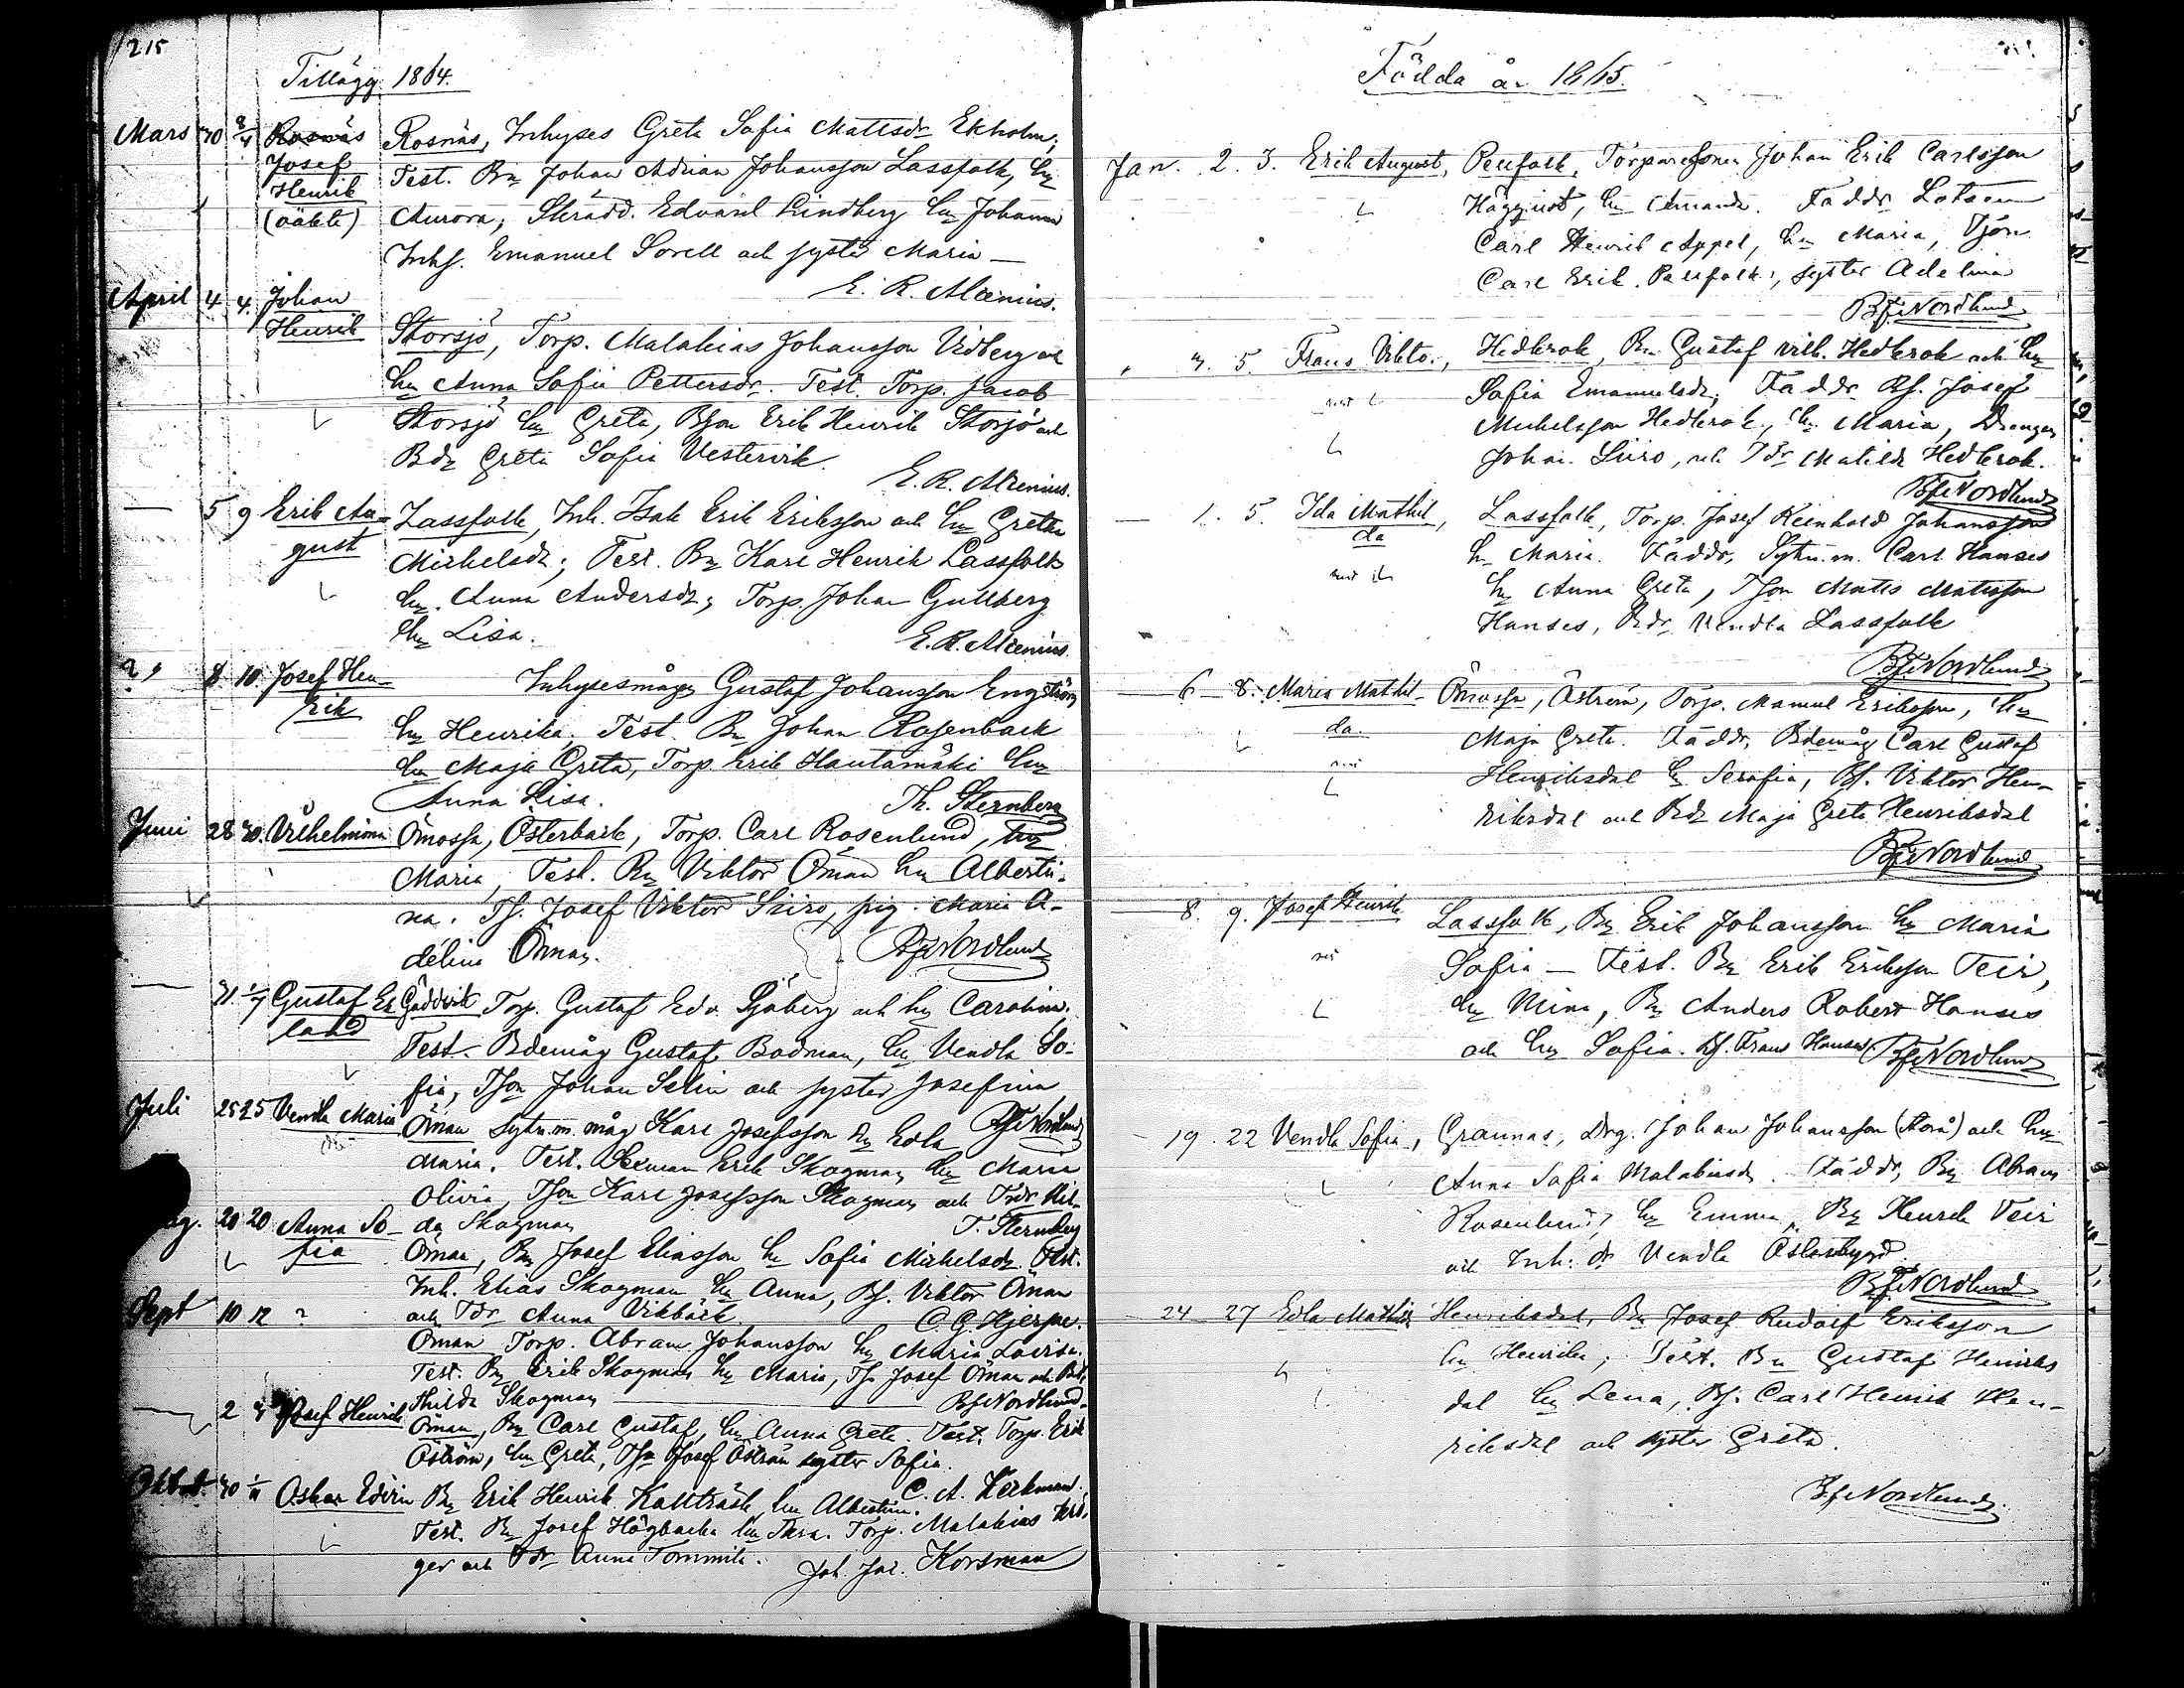 215
Tillägg 1864.
Mars 30 3/4 Rosnäs Rosnäs, Inhyses Greta Sofia Mattsdr Ekholm;
Josef Test. Bn Johan Adrian Johansson Lassfolk, hu
Henrik
(oäkta) Aurora, Skrädd. Edvard Lindberg hu Johanna
Inhs. Emanuel Sorell och syster Maria —
E. R. Alcenius.
April 4 4. Johan
Henrik Storsjö, Torp. Malakias Johansson Vidberg och
hu Anna Sofia Pettersdr. Test. Torp. Jacob
Storsjö hu Greta, Bson Erik Henrik Storsjö och
Bdr Greta Sofia Vestervik.
E. R. Alcenius.
— 5 9 Erik Au- Lassfolk, Inh. Isak Erik Eriksson och hu Greta
gust Michelsdr; Test. Bn Karl Henrik Lassfolk
hu Anna Andersdr; Torp. Johan Gullberg
hu Lisa.
E. R. Alcenius.
8 10. Josef Hen- Inhysesmågen Gustaf Johansson Engström
rik hu Henrika, Test. Bn Johan Rosenback
hu Maja Greta, Torp. Erik Hautamäki hu
Anna Lisa. Th. Sternberg
Juni 28 30. Vilhelmina Ömossa, Österback, Torp. Carl Rosenlund, hu
Maria, Test. Bn Viktor Öman hu Alberti-
na. Ts. Josef Viktor Siiro, pig. Maria A-
delina Öman. BfeNordlund
— 31. 1/7 Gustaf Er Gäddvik Torp. Gustaf Edv. Sjöberg och hu Carolina.
land Test. Bdemåg Gustaf Bodman, hu Vendla So-
fia, Tson Johan Selin och syster Josefina
Juli 25 25 Vendla Maria Öman Sytn.m. måg Karl Josefsson hu Edla BfeNordlund
Maria. Test. Sexman Erik Skogman hu Maria
Olivia, Tson Karl Josefsson Skogman och Tndr Hil-
20 20 Anna So- da Skogman T. Sternberg
fia Öman, Bn Josef Eliasson hu Sofia Michelsdr. Test.
Inh. Elias Skogman hu Anna, Bs. Viktor Öman
Sept 10 12 ? och Tdr Anna Vikbäck C. G. Hjerpe.
Öman Torp. Abram Johansson hu Maria Lovisa.
Test. Bn Erik Skogman hu Maria, Ts. Josef Öman och Bdr
Hilda Skogman BfeNordlund.
— 2 Josef Henrik Öman, Bn Carl Gustaf, hu Anna Greta. Test. Torp. Erik
Öström, hu Greta, Tson Josef Öström syster Sofia.
C. A. Kerkman.
30 1/11 Oskar Edvin Bn Erik Henrik Kallträsk, hu Albertina.
Test. Bn Josef Högbacka hu Thra. Torp. Malakias
ger och Tdr Anna Tommila. Joh. Jac. Korsman
Födda år 1865.
Jan. 2. 3. Erik August, Pellfolk, Torparesonen Johan Erik Carlsson
Häggqvist, hu Amanda. Faddr Lotsen
Carl Henrik Appel, hu Maria, Bjon
Carl Erik Pellfolk, syster Adelina
BfeNordlund
" 3. 5. Frans Vikto., Hedkrok, Bn Gustaf Vilh. Hedkrok och hu
Sofia Emanuelsdr, Faddr Bs. Josef
Michelsson Hedkrok, hu Maria, Drengen
Johan Siiro, och Tdr Matilda Hedkrok.
BfeNordlund
— 1. 5. Ida Mathil- Lassfolk, Torp. Josef Reinhold Johansson
da hu Maria. Faddr, Sytn.m. Carl Hanses
hu Anna Greta, Tson Matts Mattsson
Hanses, Bdr Vendla Lassfolk
BfeNordlund
— 6 — 8. Maria Mathil- Ömossa, Åström, Torp. Manuel Eriksson, hu
da. Maja Greta. Faddr, Bdemåg Carl Gustaf
Henriksdal hu Serafia, Bs. Viktor Hen-
riksdal och Bdr Maja Greta Henriksdal
BfeNordlund
— 8. 9. Josef Henrik Lassfolk, Bn Erik Johansson hu Maria
Sofia — Test. Bn Erik Eriksson Teir,
hu Mina, Bn Anders Robert Hanses
och hu Sofia. Bs. Frans Hanses BfeNordlund
— 19. 22 Vendla Sofia, Grannas, Drg. Johan Johansson (Storå) och hu
Anna Sofia Malakiasdr. Faddr, Bn Abram
Rosenlund, hu Emma, Bn Henrik Teir
och Inh. dr Vendla Östersbygd.
BfeNordlund
— 24 — 27 Edla Mathilda Henriksdal, Bn Josef Rudolf Eriksson
hu Henrika; Test. Bn Gustaf Henriks
dal hu Lena, Bs. Carl Henrik Hen-
riksdal och syster Greta.
BfeNordlund.